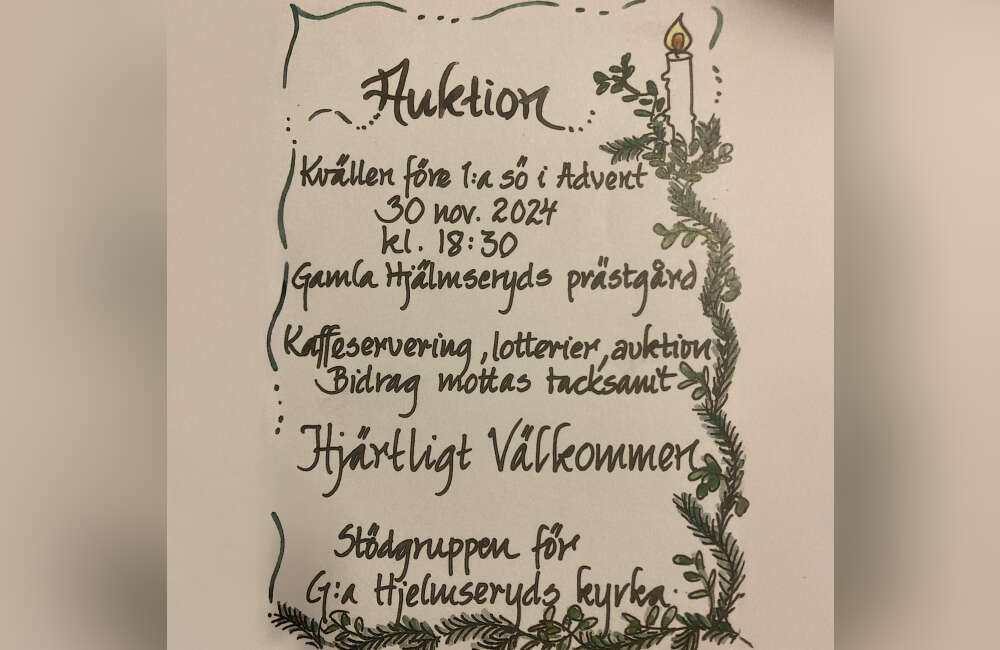 Auktion
Kvällen före 1:a sö i Advent
30 nov. 2024
kl. 18:30
Gamla Hjälmseryds prästgård
Kaffeservering, lotterier, auktion
Bidrag mottas tacksamt
Hjärtligt Välkommen
Stödgruppen för
G:a Hjelmseryds kyrka